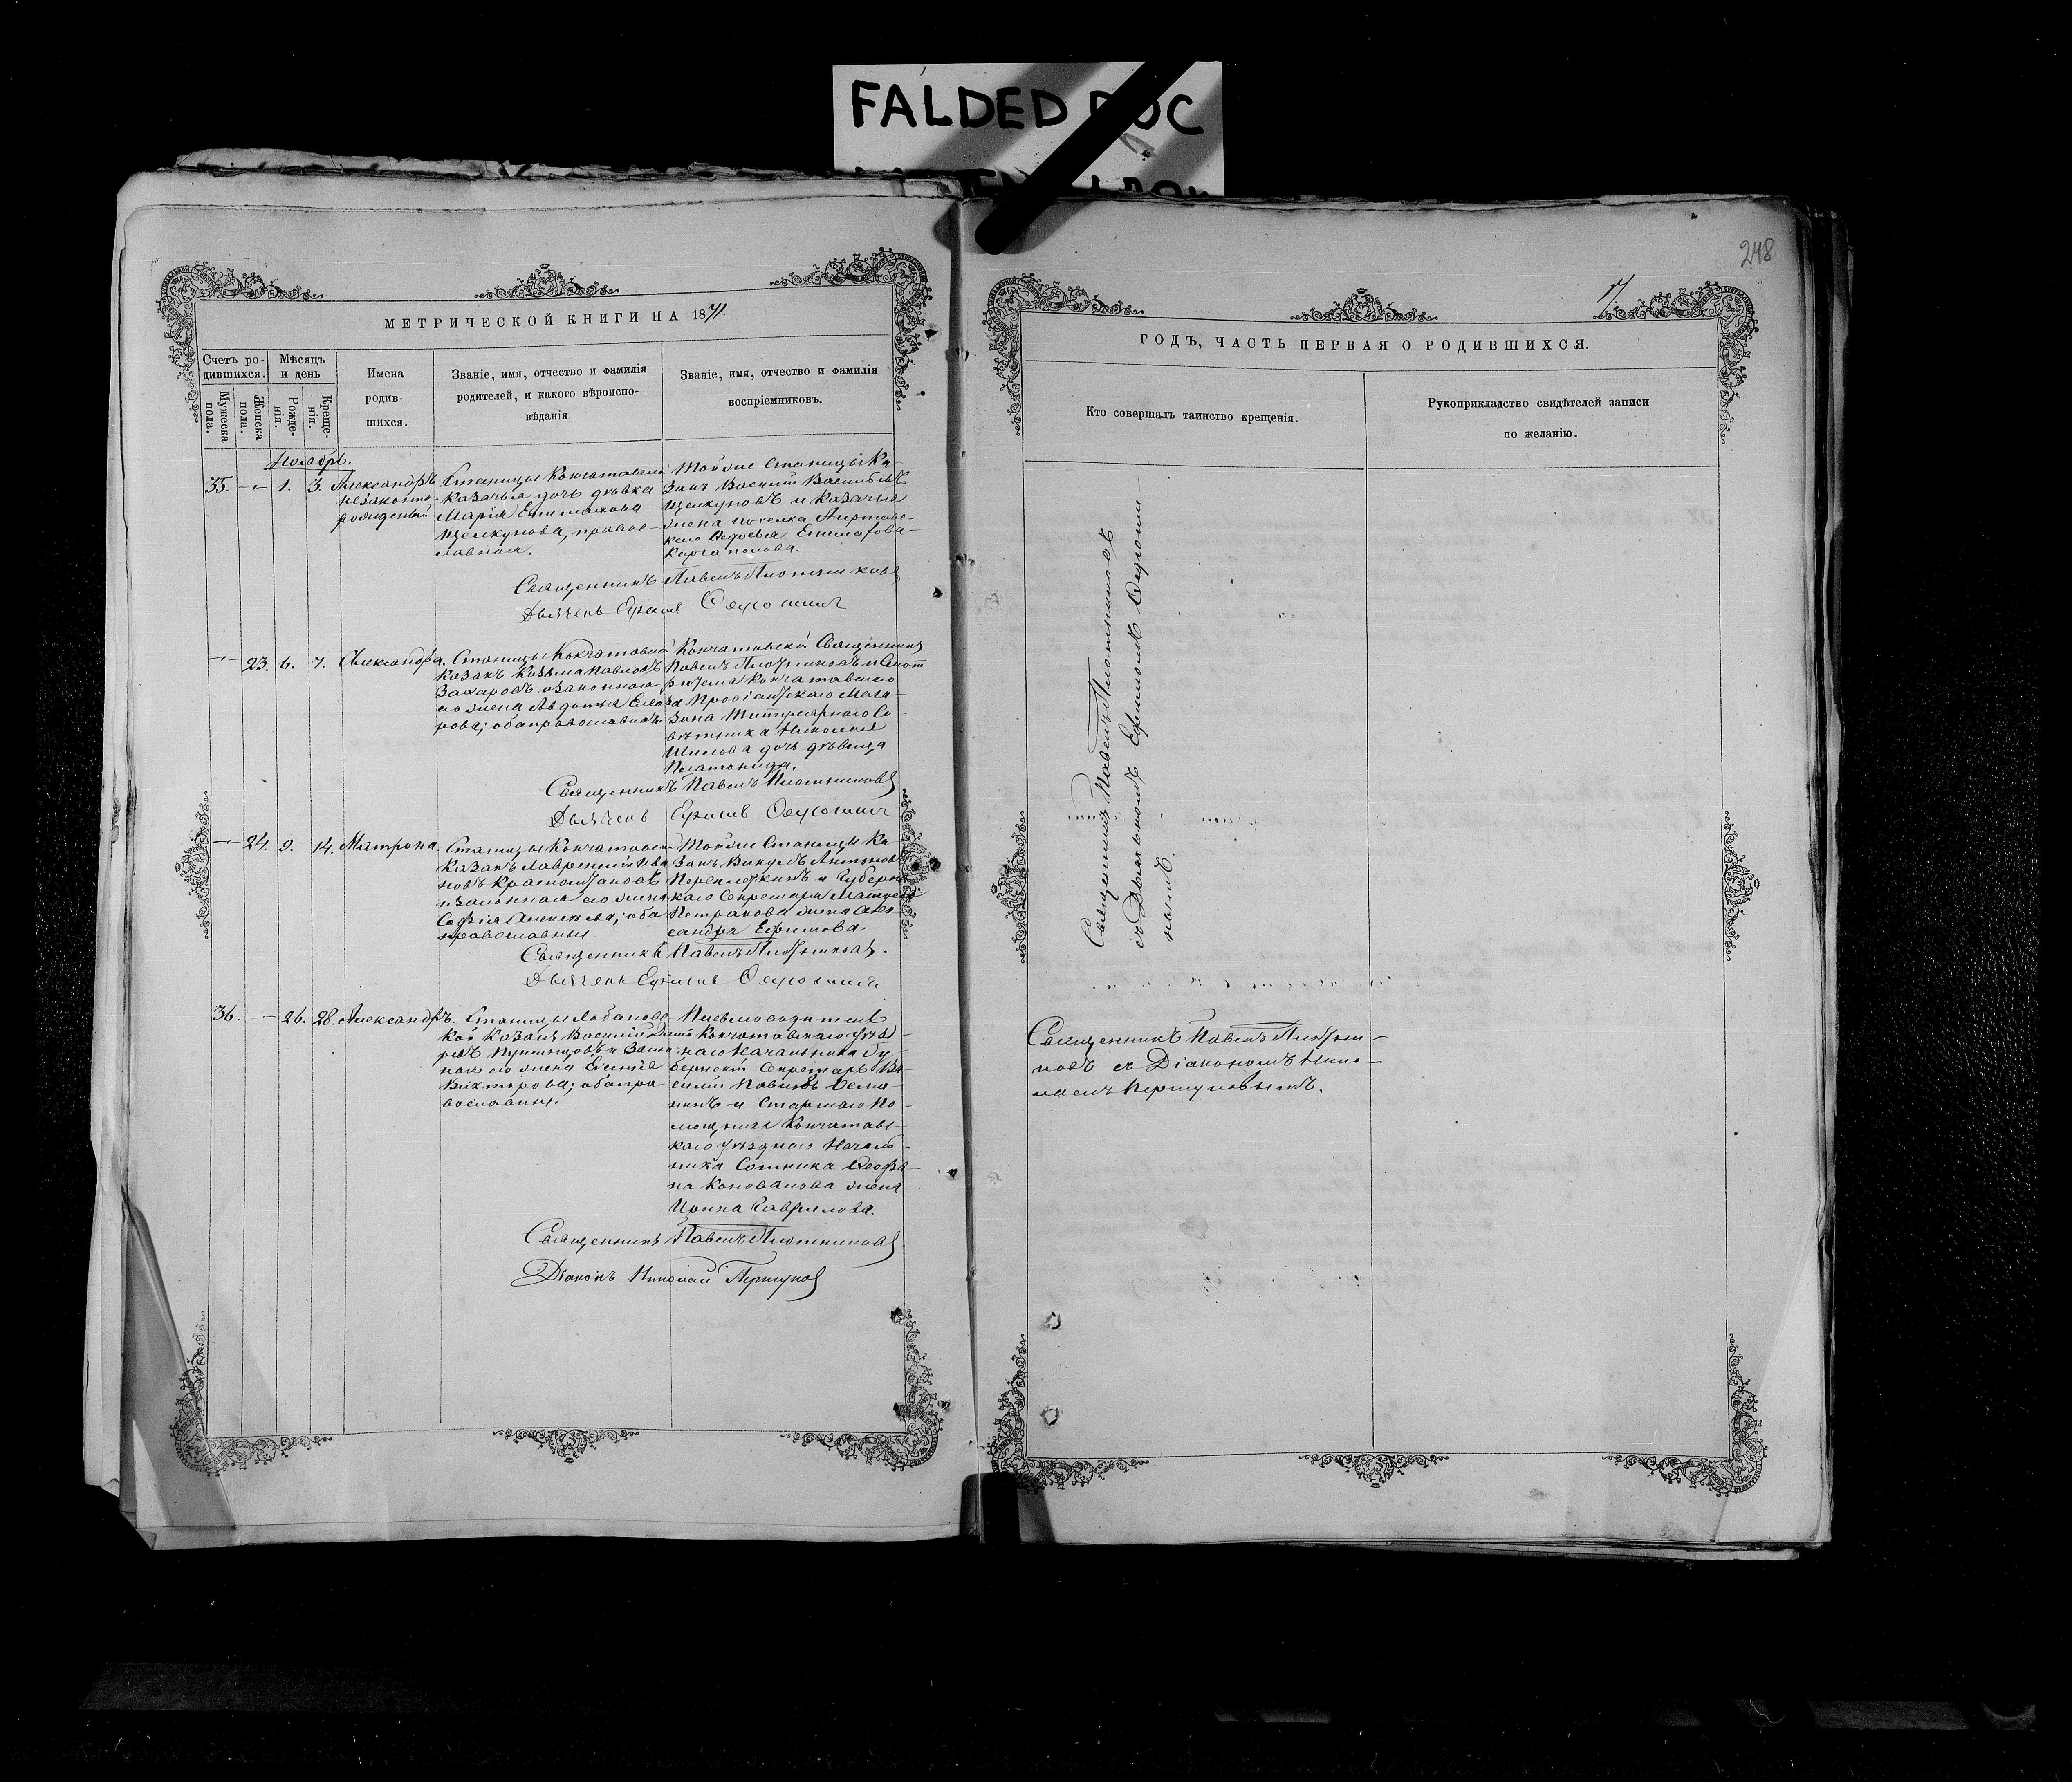 FALDED DOC
248
МЕТРИЧЕСКОЙ КНИГИ НА 1871.
Счетъ ро-
дившихся.
Мѣсяцъ
и день
Мужеска
пола.
Женска
пола.
Рожде-
нія.
Креще-
нія.
Имена
родив-
шихся.
Званіе, имя, отчество и фамилія
родителей, и какого вѣроиспо-
вѣданія
Званіе, имя, отчество и фамилія
воспріемниковъ.
Ноябрь.
35. 1. 3. Александръ
незаконно-
рожденный
Станицы Кокчетавской
Казачья дочь дѣвка
Марія
Щелкунова, правос-
лавная.
Тойже Станицы Ка-
закъ Василій Васильевъ
Щелкуновъ и Казачья
жена поселка
Каргаполова.
Священникъ Павелъ Плотниковъ
Дьячекъ Ефимъ
23. 6. 7. Александра.
Станицы Кокчетавской
Казакъ Козьма Павловъ
Захаровъ и законная
его жена Авдотья Елеза-
рова; оба православные
Кокчетавскій Священникъ
Павелъ Плотниковъ и Смот
рителя Кокчетавскаго
Провіантскаго Мага-
зина Титулярнаго Со-
вѣтника Николая
Шилова дочь дѣвица
Платонида.
Священникъ Павелъ Плотниковъ
Дьячекъ Ефимъ
24. 9. 14. Матрона.
Станицы Кокчетавской
Казакъ Лаврентій Ива
новъ
и законная его жена
Софія Алексѣева; оба
православные
Тойже Станицы Ка
закъ Викулъ Антоновъ
и Губернс
каго Секретаря Матвея
Петракова жена Алек
сандра Ефимова.
Священникъ Павелъ Плотниковъ.
Дьячекъ Ефимъ
36. 26. 28. Александръ.
Станицы Лобановс
кой Казакъ Василій
и Закон
ная его жена Евгенія
Викторова; оба пра-
вославные.
Письмоводитель
Кокчетавскаго Уѣзд-
наго Начальника Гу-
бернскій Секретарь Ва-
силій Павловъ
и Старшаго По-
мощника Кокчетавс-
каго Уѣзднаго Началь-
ника Сотника Феофа-
на Коновалова жена
Ирина Гаврилова.
Священникъ Павелъ Плотниковъ
Діаконъ Николай Першуковъ
17.
ГОДЪ, ЧАСТЬ ПЕРВАЯ О РОДИВШИХСЯ.
Кто совершалъ таинство крещенія.
Рукоприкладство свидѣтелей записи
по желанію.
Священникъ Павелъ Плотниковъ
съ Дьячкомъ Ефимомъ
Священникъ Павелъ Плотни-
ковъ съ Діакономъ Нико-
лаемъ Першуковымъ.